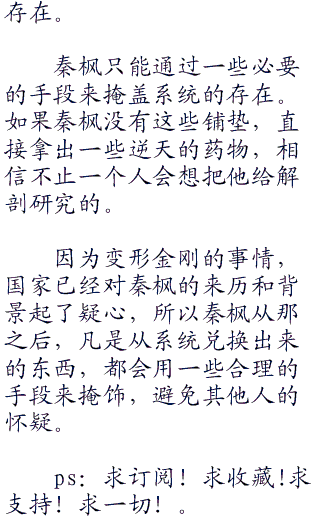 存在。
秦枫只能通过一些必要
的手段来掩盖系统的存在。
如果秦枫没有这些铺垫，直
接拿出一些逆天的药物，相
信不止一个人会想把他给解
剖研究的。
因为变形金刚的事情，
国家已经对秦枫的来历和背
景起了疑心，所以秦枫从那
之后，凡是从系统兑换出来
的东西，都会用一些合理的
手段来掩饰，避免其他人的
怀疑。
ps：求订阅！求收藏!求
支持！求一切！。